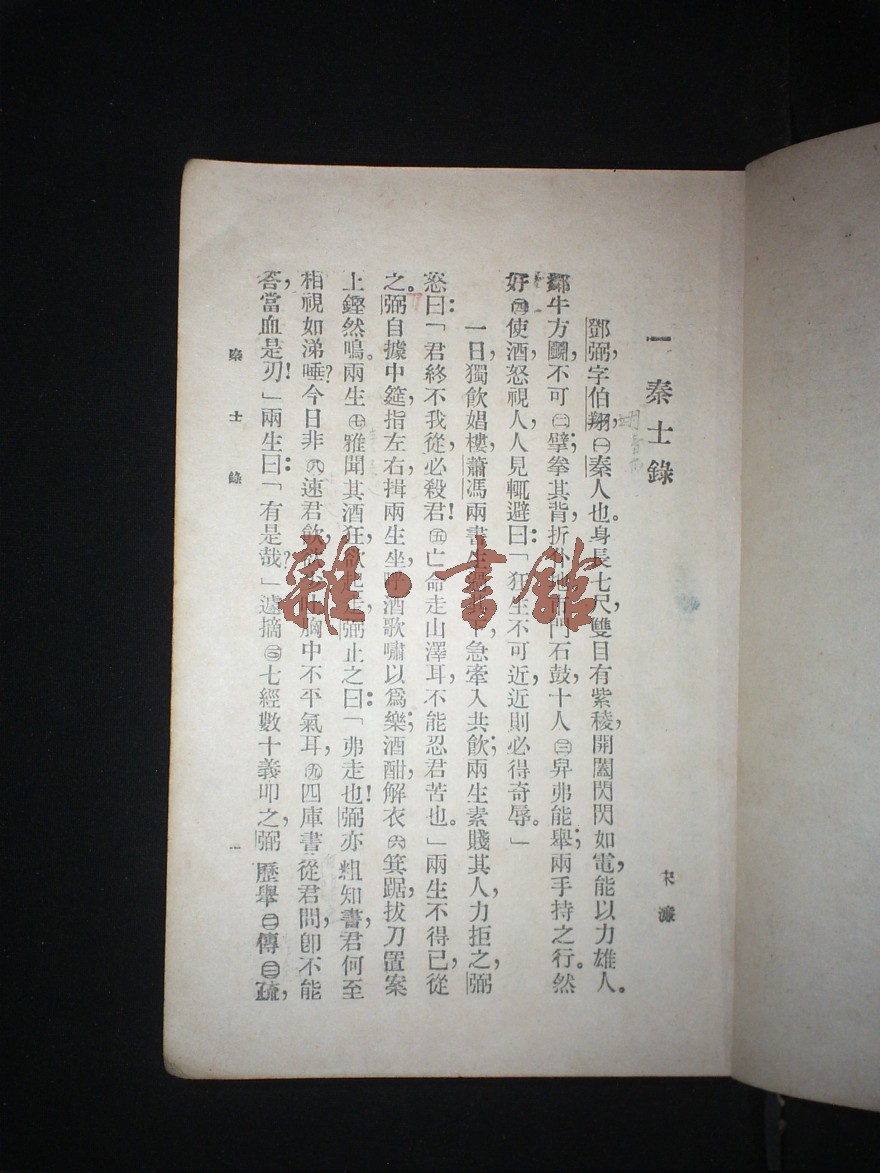 一 秦士錄
宋濂
鄧弼，字伯翔，㊀秦人也。身長七尺，雙目有紫稜，開闔閃閃如電，能以力雄人。
鄰牛方鬭，不可㊁擘，拳其背，折仆地；市門石鼓，十人㊂舁弗能舉；兩手持之行。然
好㊃使酒，怒視人，人見輒避，曰：「狂生不可近，近則必得奇辱。」
一日，獨飲娼樓，蕭馮兩書生過其下，急牽入共飲；兩生素賤其人，力拒之，弼
怒曰：「君終不我從，必殺君！㊄亡命走山澤耳，不能忍君苦也。」兩生不得已，從
之。弼自據中筵，指左右，揖兩生坐，呼酒歌嘯以爲樂；酒酣，解衣㊅箕踞，拔刀置案
上，鏗然鳴。兩生㊆雅聞其酒狂，欲起走，弼止之曰：「弗走也！弼亦粗知書，君何至
相視如涕唾？今日非㊇速君飲，欲少吐胸中不平氣耳，㊈四庫書從君問，卽不能
答，當血是刃！」兩生曰：「有是哉？」遽摘㊁七經數十義叩之，弼歷舉㊁傳㊂疏，
秦士錄
一
雜·書館